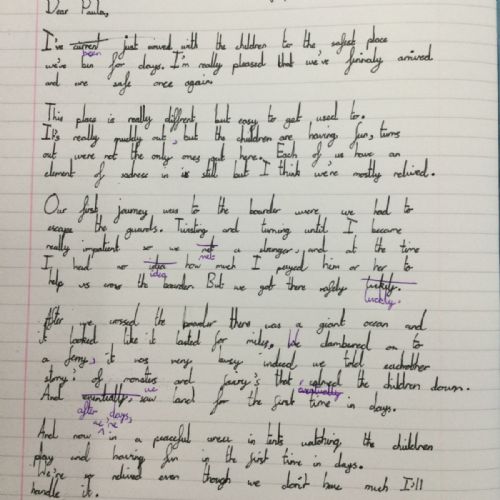 Dear Paula,
I've current just arrived with the children to the safest place
we've been for days. I'm really pleased that we've finnaly arrived
and are safe once again.
This place is really diffrent but easy to get used to.
It's really muddy out, but the children are having fun, turns
out were not the only ones out here. Each of us have an
element of sadness in is still but I think we're mostly relived.
Our first journey was to the boarder were we had to
escape the guards. Twisting and turning until I became
really impatient so we met a stranger, and at the time
I had no idea how much I payed him or her to
help us cross the boarder. But we got there safely luckily.
After we crossed the boarder there was a giant ocean and
it looked like it lasted for miles. We clambured on to
a ferry, it was very busy indeed we told eachother
story's of monsters and fairy's that calmed the children down.
And eventually we saw land for the first time in days.
after days,
And now we're in a peaceful area in tents watching the children
play and having fun in the first time in days.
We're so relived even though we don't have much I'll
handle it.